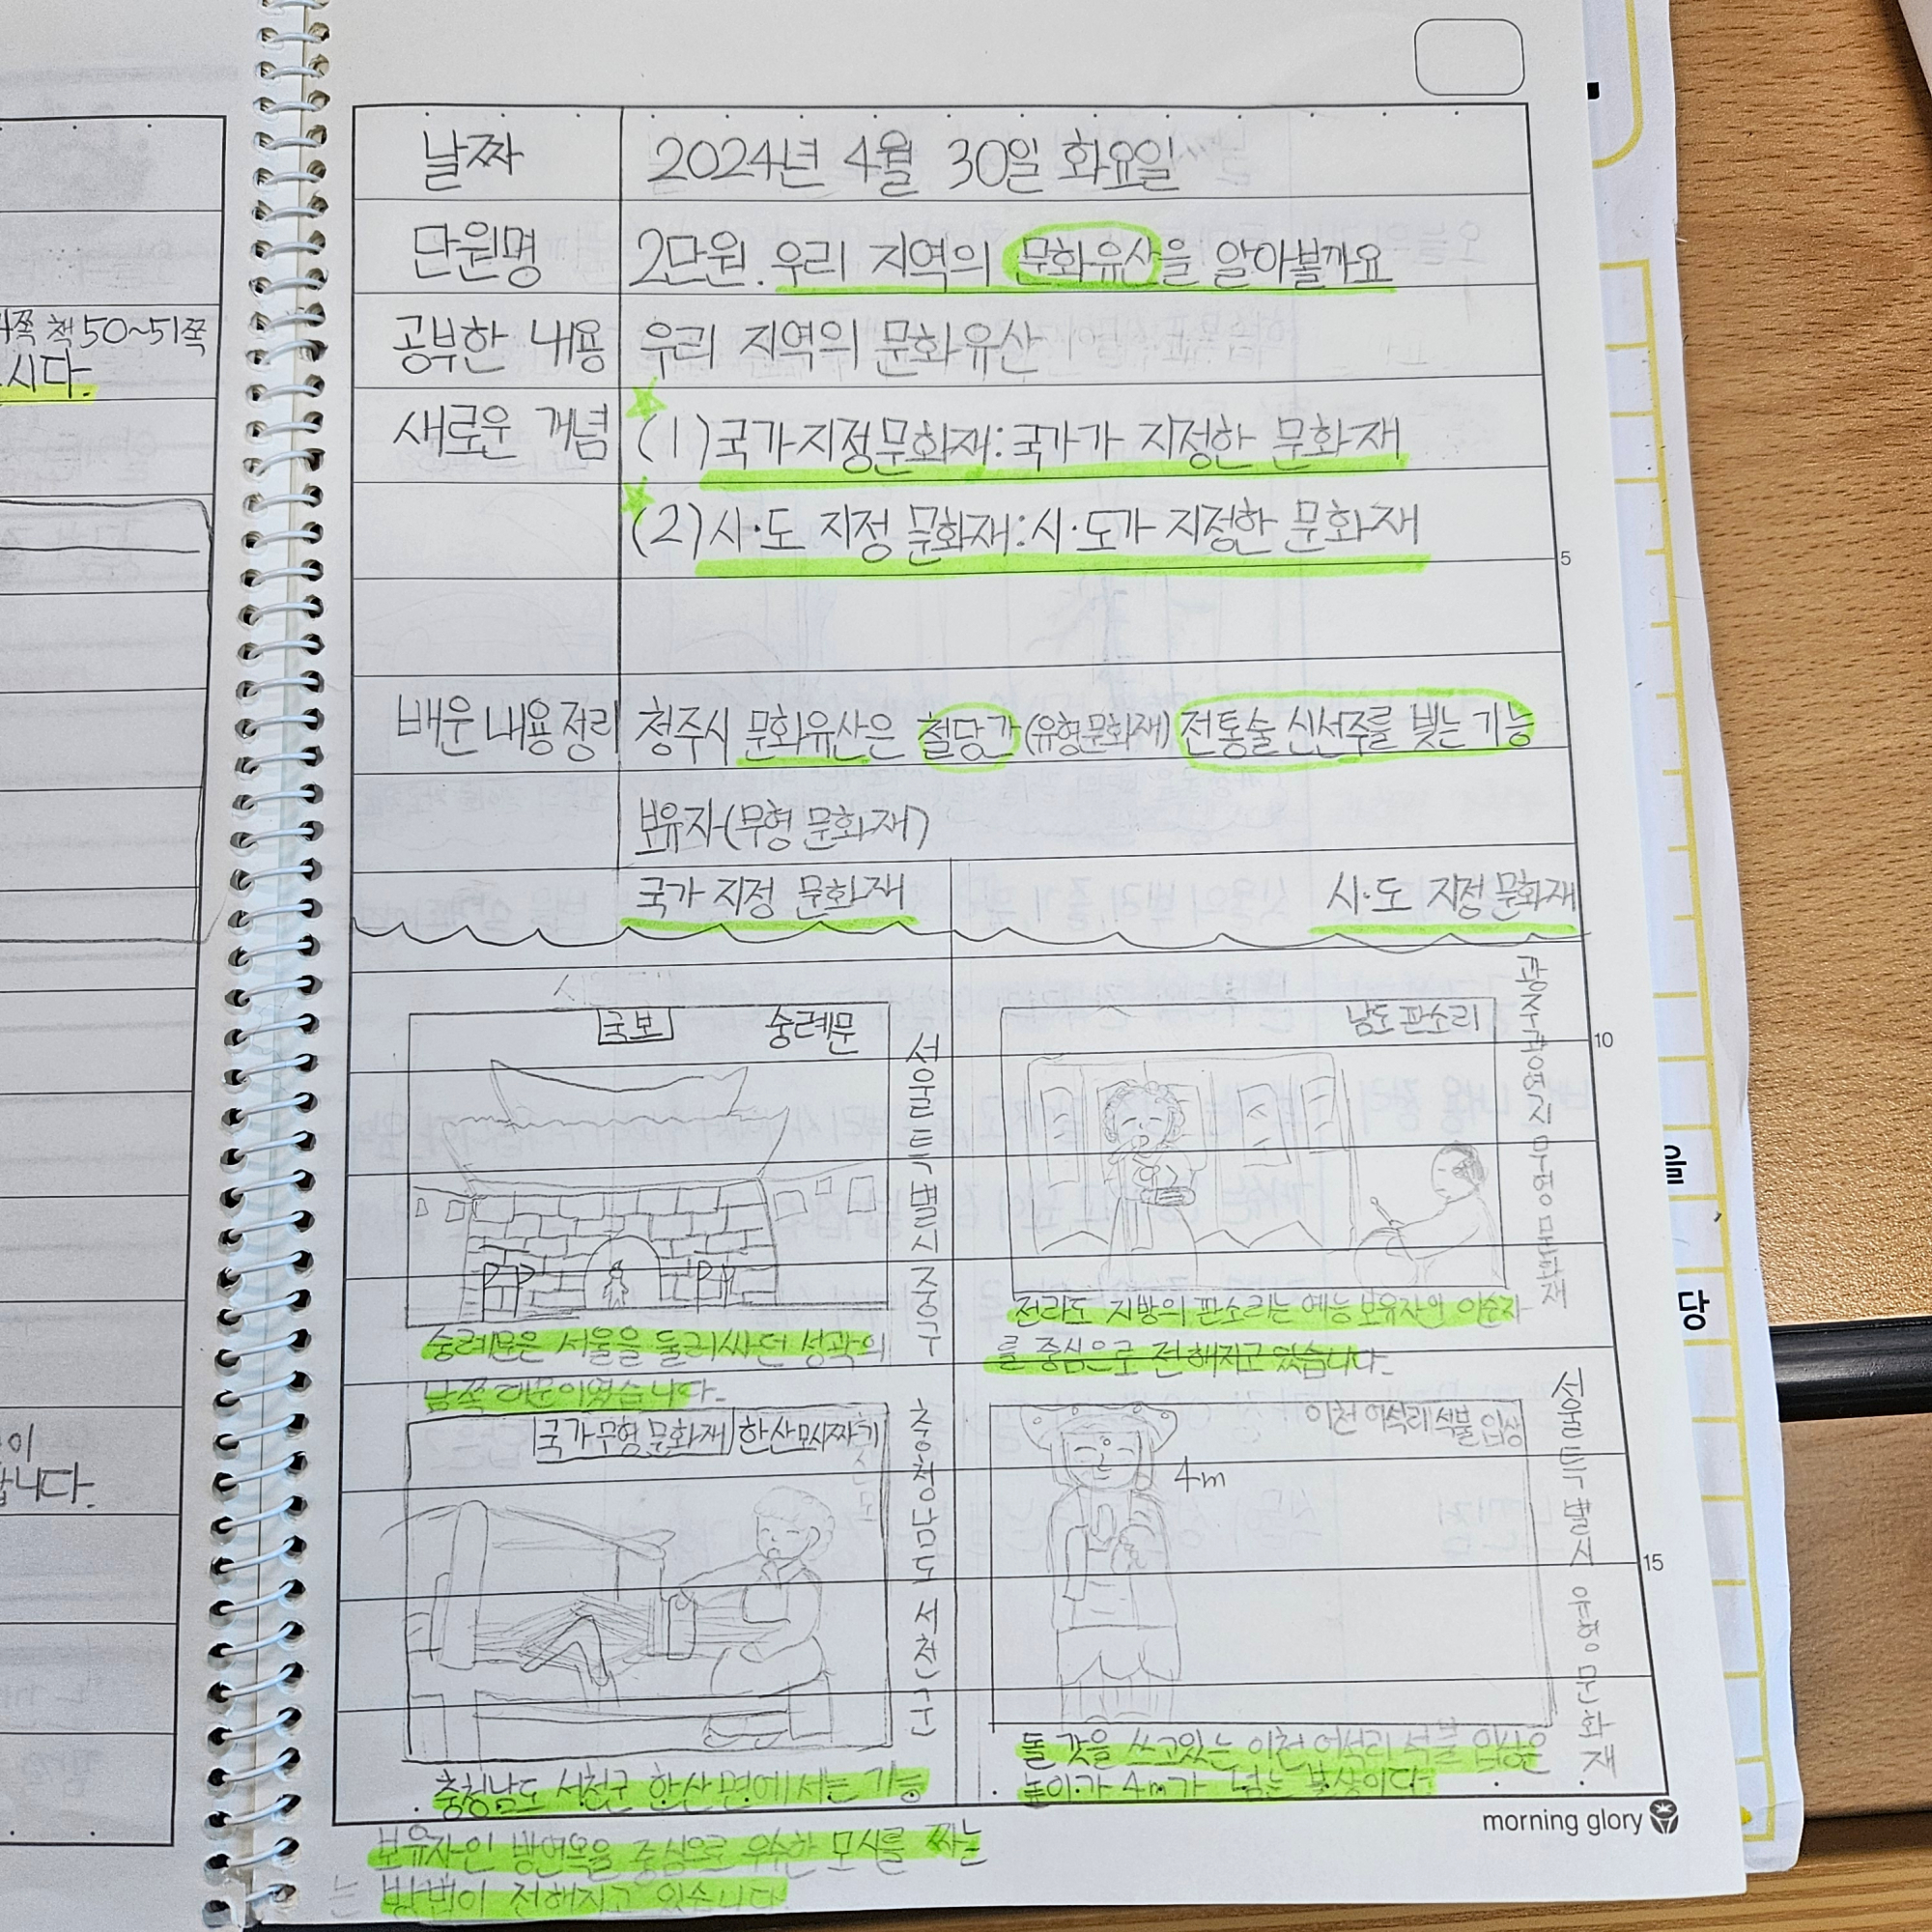 날짜 2024년 4월 30일 화요일
단원명 2단원. 우리 지역의 문화유산을 알아볼까요
공부한 내용 우리 지역의 문화유산
새로운 개념 (1)국가지정문화재:국가가 지정한 문화재
(2)시·도 지정 문화재:시·도가 지정한 문화재
5
배운 내용 정리 청주시 문화유산은 철당간(유형문화재) 전통술 신선주를 빚는 기능
보유자(무형 문화재)
국가 지정 문화재
시·도 지정 문화재
국보 숭례문
서울특별시 중구
숭례문은 서울을 둘러싸던 성곽의
남쪽 대문이었습니다.
남도 판소리
광주광역시 무형 문화재
10
전라도 지방의 판소리는 예능 보유자인 이순자
를 중심으로 전해지고 있습니다.
국가무형 문화재 한산모시짜기
충청남도 서천군
충청남도 서천군 한산면에서는 기능
보유자인 방연옥을 중심으로 우수한 모시를 짜는
는 방법이 전해지고 있습니다.
이천 어석리 석불 입상
4m
서울특별시 유형 문화재
15
돌 갓을 쓰고있는 이천 어석리 석불 입상은
높이가 4m가 넘는 불상이다.
morning glory
쪽 책 50~51쪽
시다.
이
합니다.
을
당